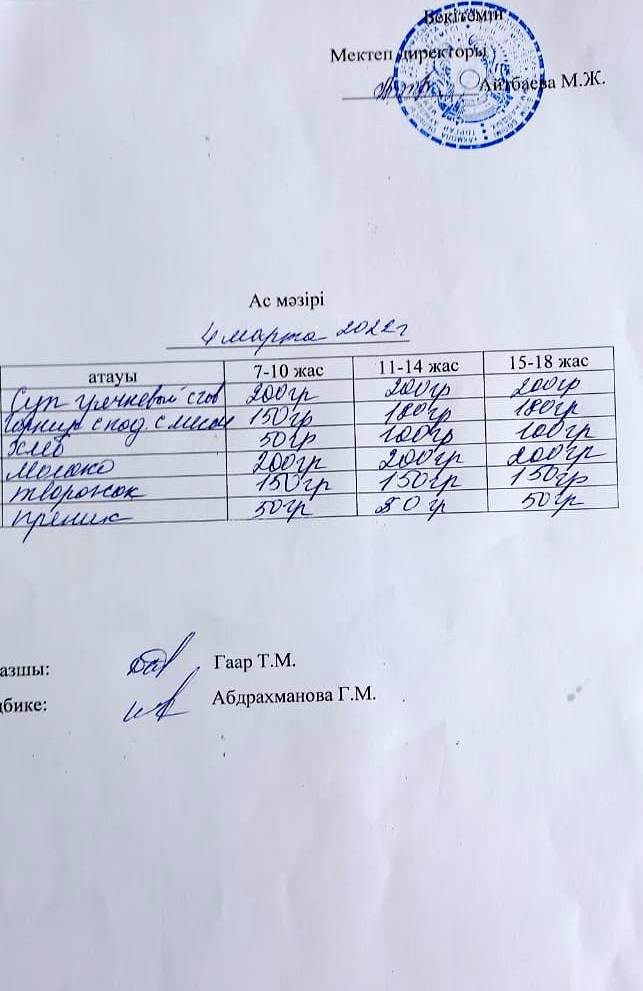 Бекітемін
Мектеп директоры
Айтбаева М.Ж.
Ас мәзірі
4 марта 2022 г
атауы 7-10 жас 11-14 жас 15-18 жас
Суп гречневый с гов 200гр 200гр 200гр
Гарнир с под с мясом 150гр 180гр 180гр
Хлеб 50гр 100гр 100гр
Молоко 200гр 200гр 200гр
творожок 150гр 150гр 150гр
пряник 50гр 50гр 50гр
азшы: Гаар Т.М.
дбике: Абдрахманова Г.М.